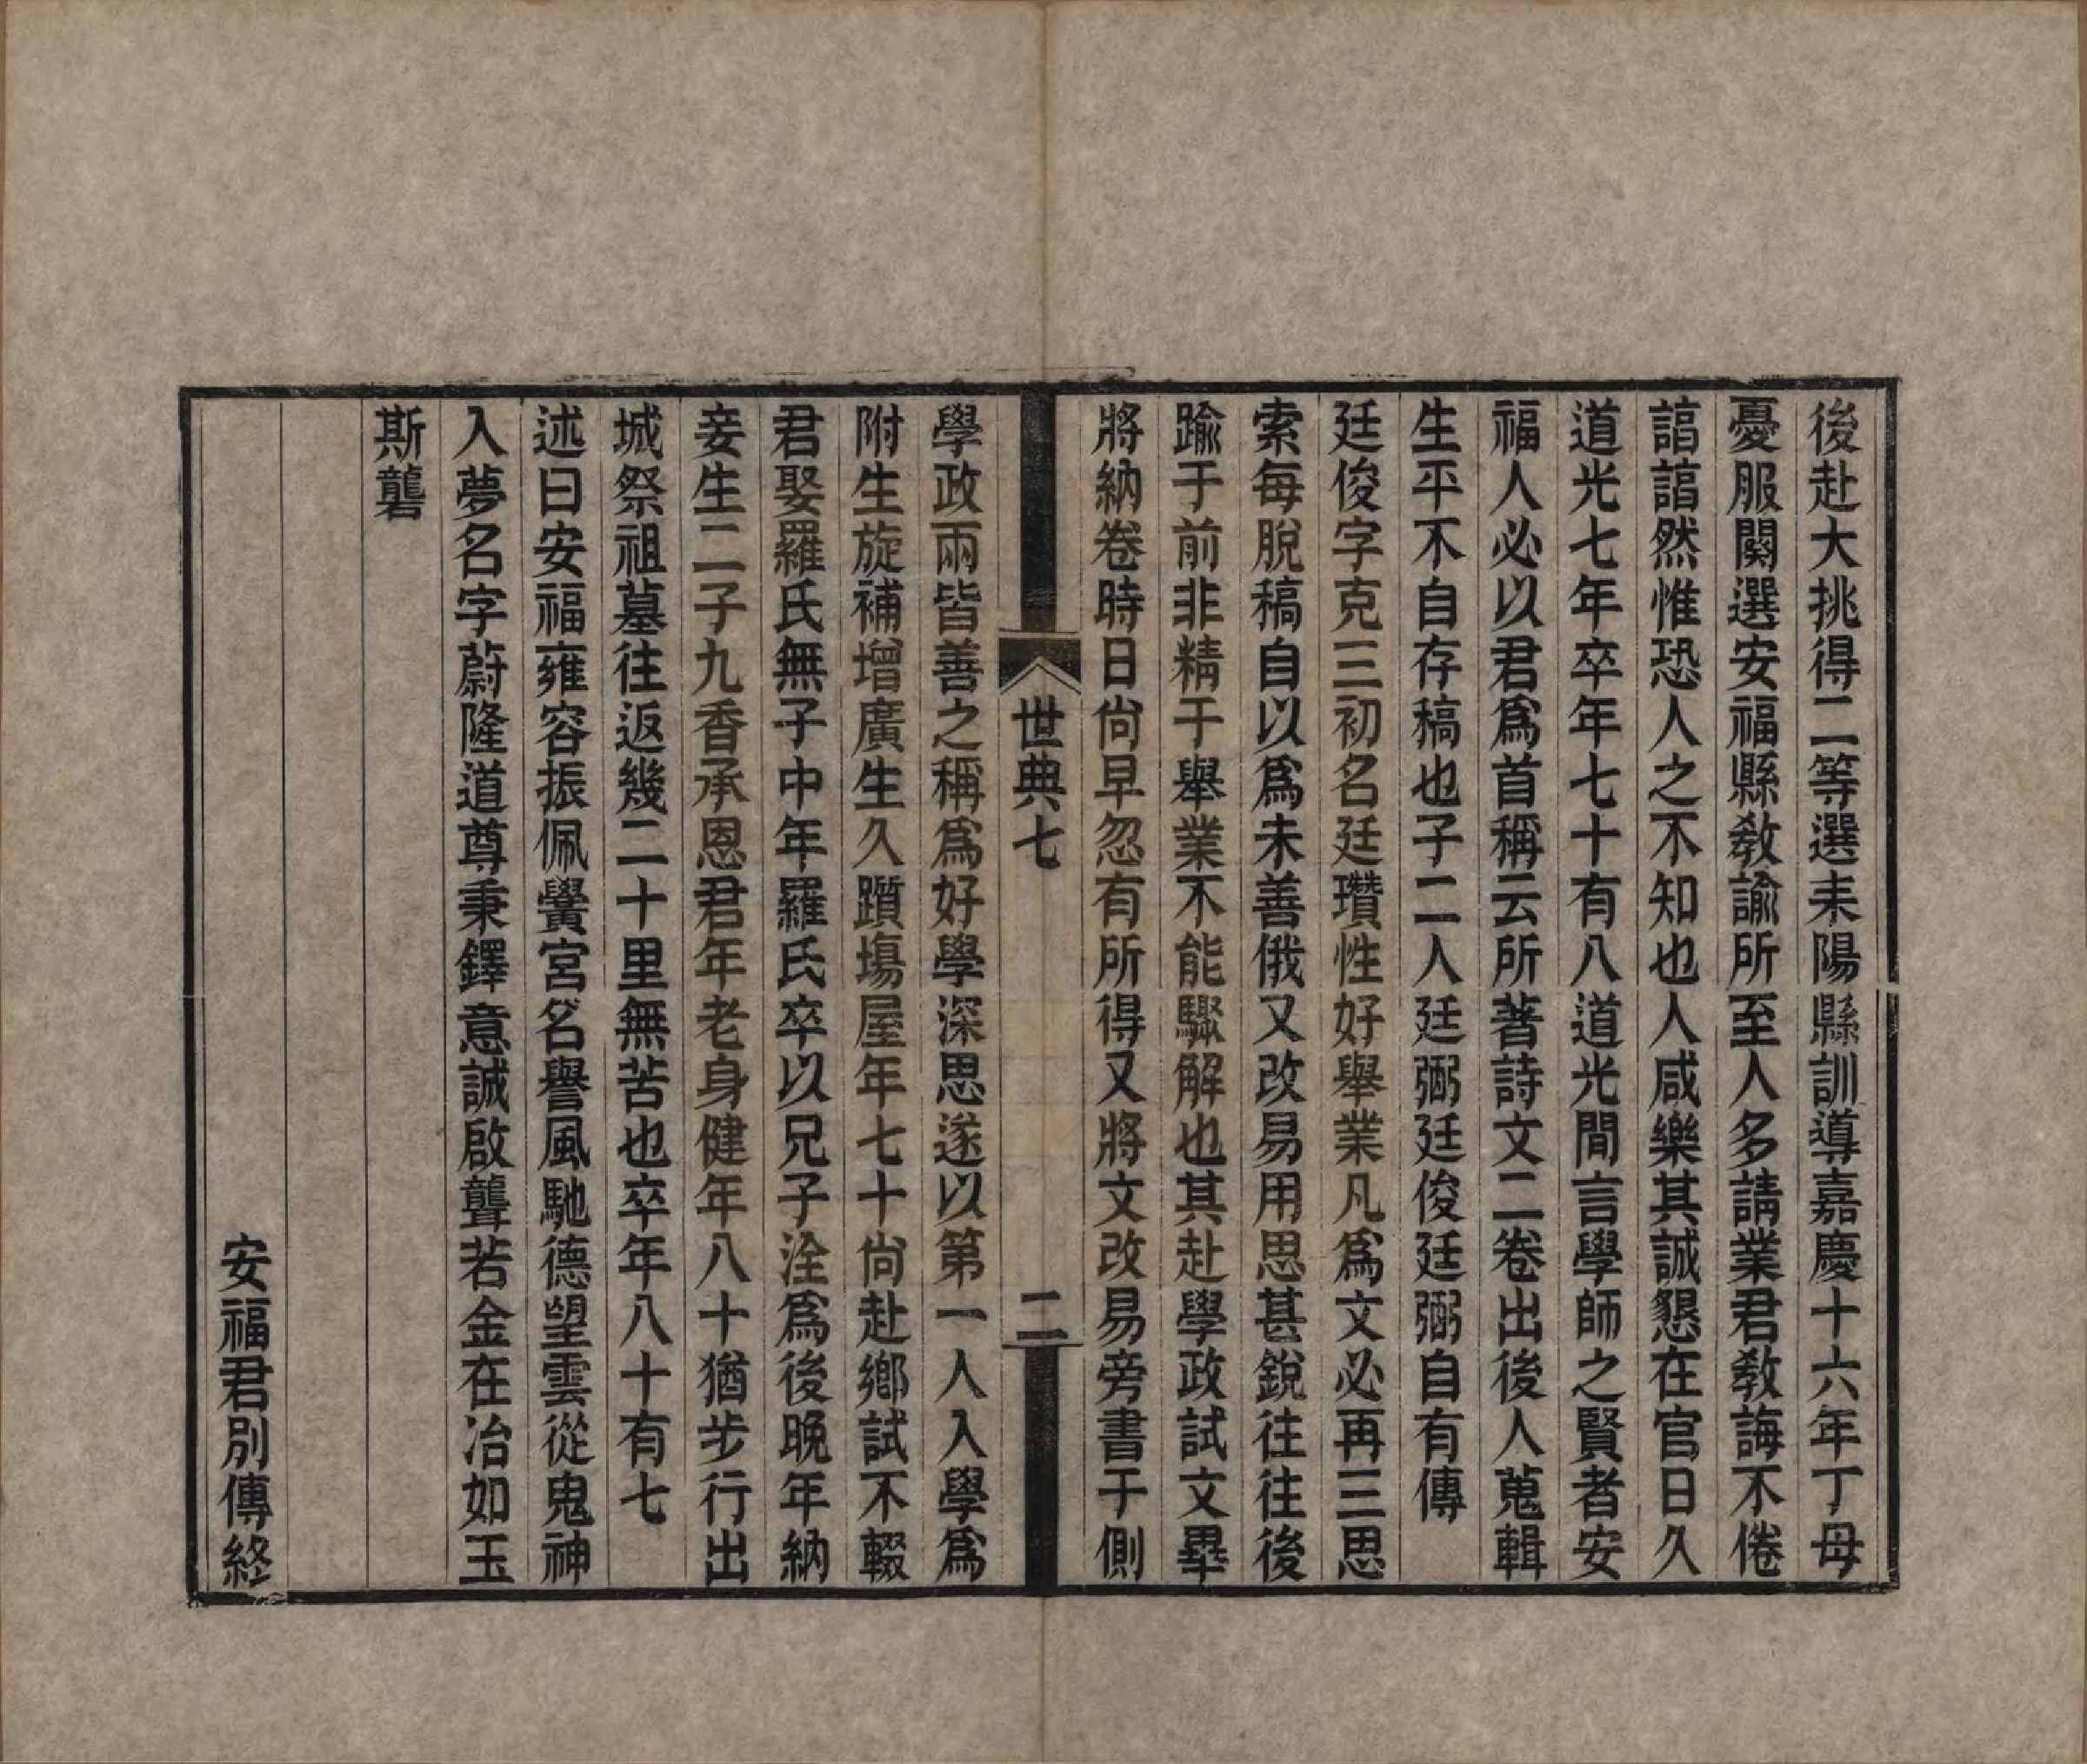 後赴大挑得二等選耒陽縣訓導嘉慶十六年丁母
憂服闋選安福縣教諭所至人多請業君教誨不倦
諳諳然惟恐人之不知也人咸樂其誠懇在官日久
道光七年卒年七十有八道光間言學師之賢者安
福人必以君爲首稱云所著詩文二卷出後人蒐輯
生平不自存稿也子二人廷弼廷俊廷弼自有傳
廷俊字克三初名廷瓚性好舉業凡爲文必再三思
索每脫稿自以爲未善俄又改易用思甚銳往往後
踰于前非精于舉業不能驟解也其赴學政試文畢
將納卷時日尙早忽有所得又將文改易旁書于側
世典七
二
學政兩皆善之稱爲好學深思遂以第一人入學爲
附生旋補增廣生久躓塲屋年七十尙赴鄉試不輟
君娶羅氏無子中年羅氏卒以兄子洤爲後晚年納
妾生二子九香承恩君年老身健年八十猶步行出
城祭祖墓往返幾二十里無苦也卒年八十有七
述曰安福雍容振佩黌宮名譽風馳德望雲從鬼神
入夢名字蔚隆道尊秉鐸意誠啟聾若金在冶如玉
斯礱
安福君別傳終